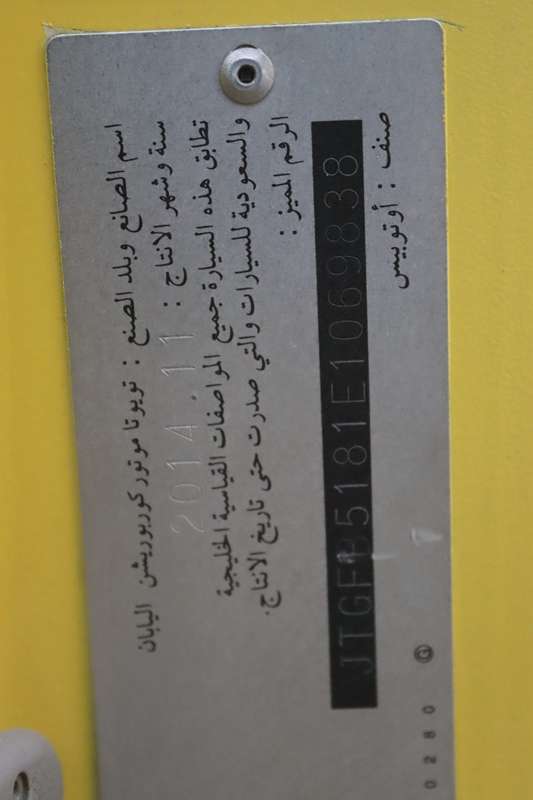 اسم الصانع وبلد الصنع : تويوتا موتور كوربوريشن اليابان
سنة وشهر الانتاج : 2014.11
تطابق هذه السيارة جميع المواصفات القياسية الخليجية
والسعودية للسيارات والتي صدرت حتى تاريخ الانتاج.
الرقم المميز :
JTGFB5181E1069838
صنف : أوتوبيس
0280 G